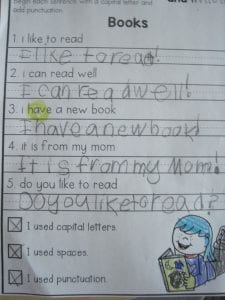 Begin each sentence with a capital letter and
add punctuation.
Books
1. i like to read
I like to read!
2. i can read well
I can read well!
3. i have a new book
I have a new book!
4. it is from my mom
It is from my Mom!
5. do you like to read
Do you like to read?
I used capital letters.
I used spaces.
I used punctuation.